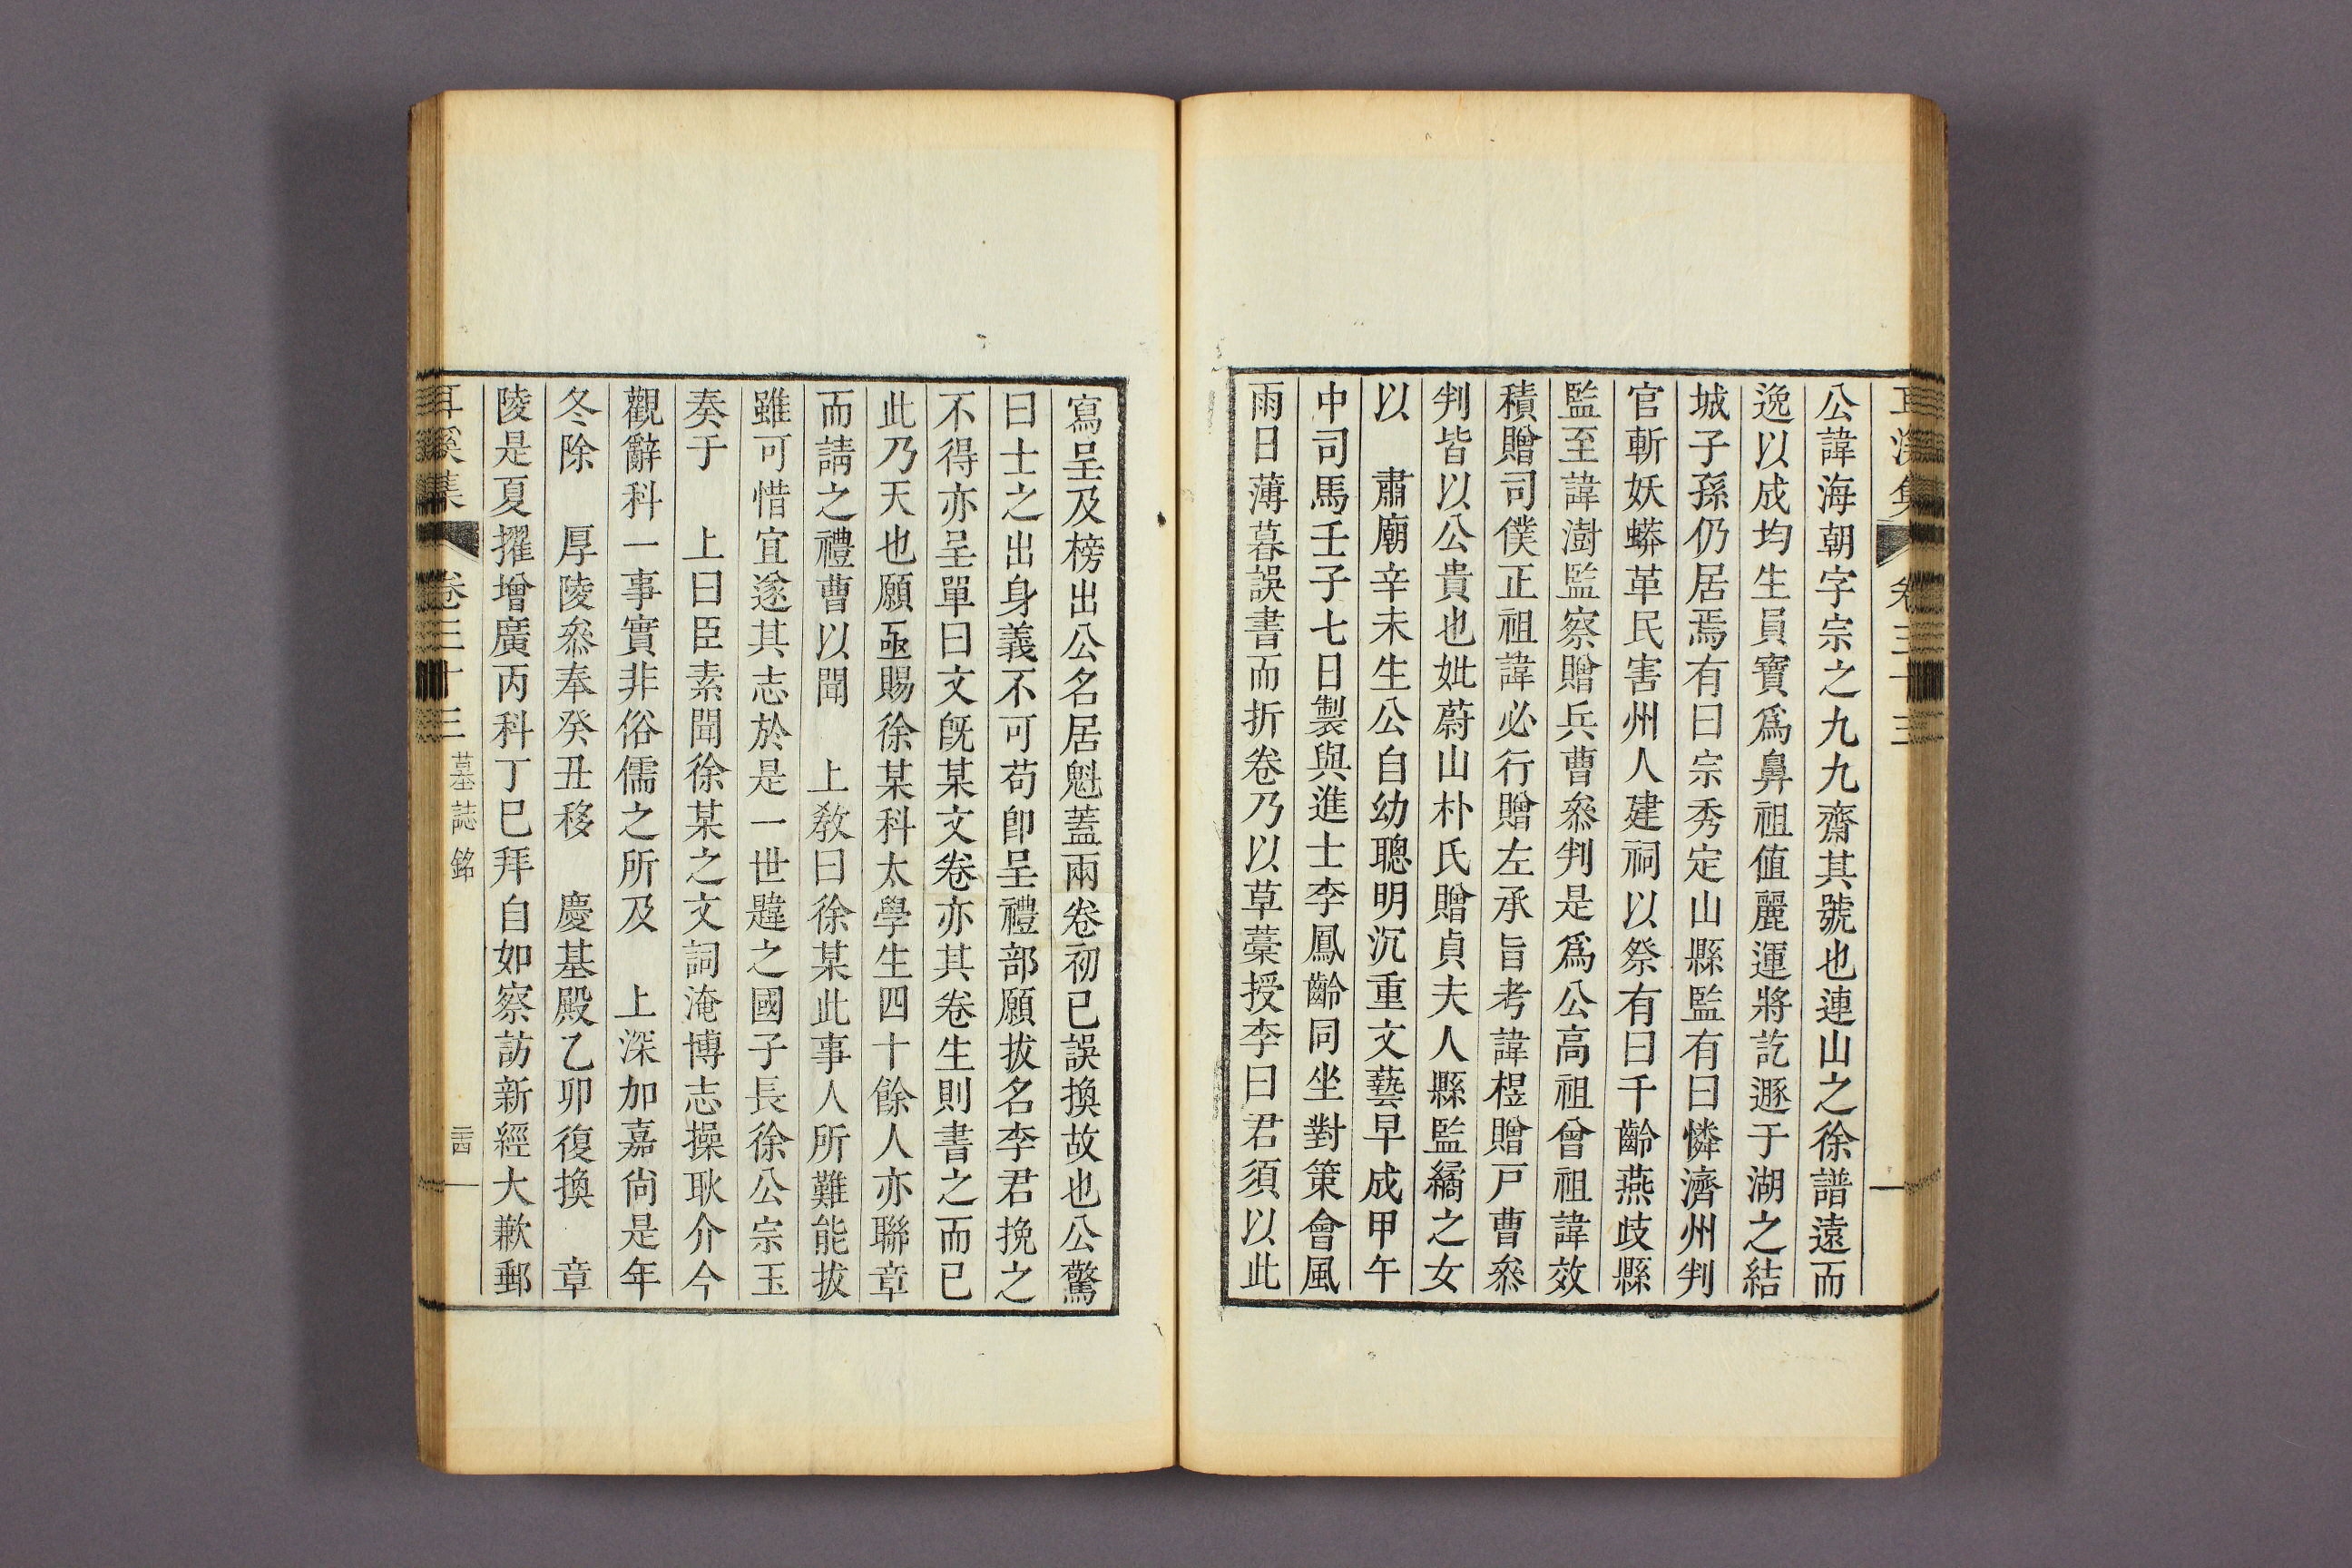 耳溪集 卷三十三
公諱海朝字宗之九九齋其號也連山之徐譜遠而
逸以成均生員寶爲鼻祖值麗運將訖遯于湖之結
城子孫仍居焉有曰宗秀定山縣監有曰憐濟州判
官斬妖蟒革民害州人建祠以祭有曰千齡燕歧縣
監至諱澍監察贈兵曹叅判是爲公高祖曾祖諱效
積贈司僕正祖諱必行贈左承旨考諱桯贈戶曹叅
判皆以公貴也妣蔚山朴氏贈貞夫人縣監繘之女
以　肅廟辛未生公自幼聰明沉重文藝早成甲午
中司馬壬子七日製與進士李鳳齡同坐對策會風
雨日薄暮誤書而折卷乃以草藁授李曰君須以此
寫呈及榜出公名居魁蓋兩卷初已誤換故也公驚
曰士之出身義不可苟卽呈禮部願拔名李君挽之
不得亦呈單曰文旣某文卷亦其卷生則書之而已
此乃天也願亟賜徐某科太學生四十餘人亦聯章
而請之禮曹以聞　上敎曰徐某此事人所難能拔
雖可惜宜遂其志於是一世韙之國子長徐公宗玉
奏于　上曰臣素聞徐某之文詞淹博志操耿介今
觀辭科一事實非俗儒之所及　上深加嘉尙是年
冬除　厚陵叅奉癸丑移　慶基殿乙卯復換　章
陵是夏擢增廣丙科丁巳拜自如察訪新經大歉郵
耳溪集 卷三十三 墓誌銘 二十四